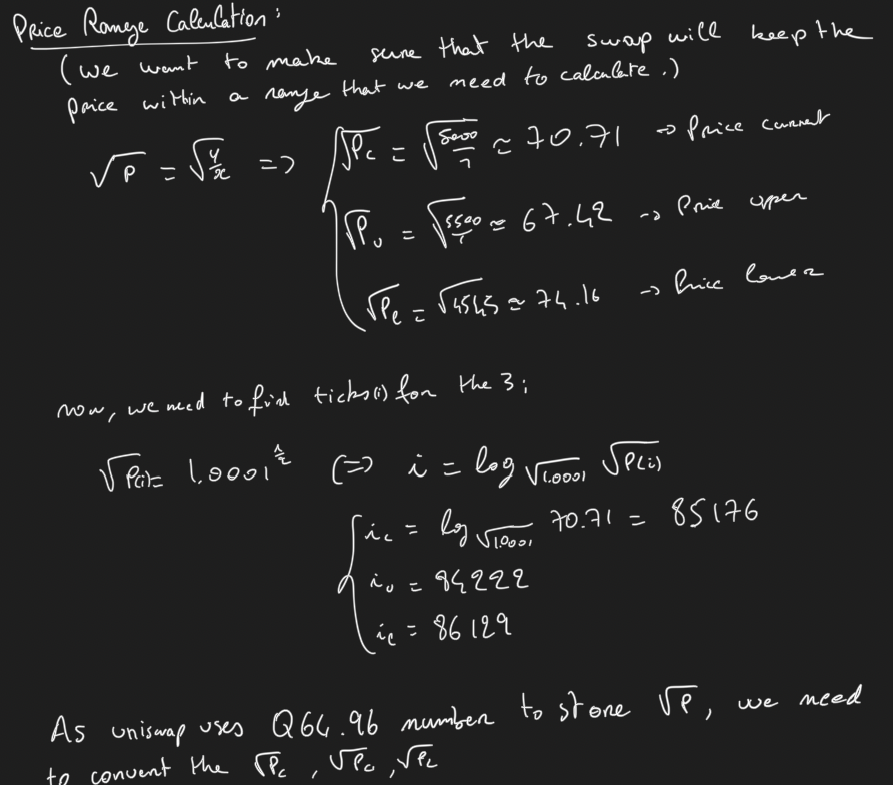 Price Range Calculation:
(we want to make sure that the swap will keep the
price within a range that we need to calculate.)
√P = √(y/x) => { √Pc = √(5000/1) ≃ 70.71 → Price current
√Pu = √(5500/1) ≃ 67.42 → Price upper
√Pl = √4545 ≃ 74.16 → Price lower
now, we need to find ticks(i) for the 3:
√P(i) = 1.0001^(i/2) <=> i = log_√1.0001 √P(i)
{ ic = log_√1.0001 70.71 = 85176
iu = 84222
il = 86129
As uniswap uses Q64.96 number to store √P, we need
to convert the √Pc, √Pu, √PL